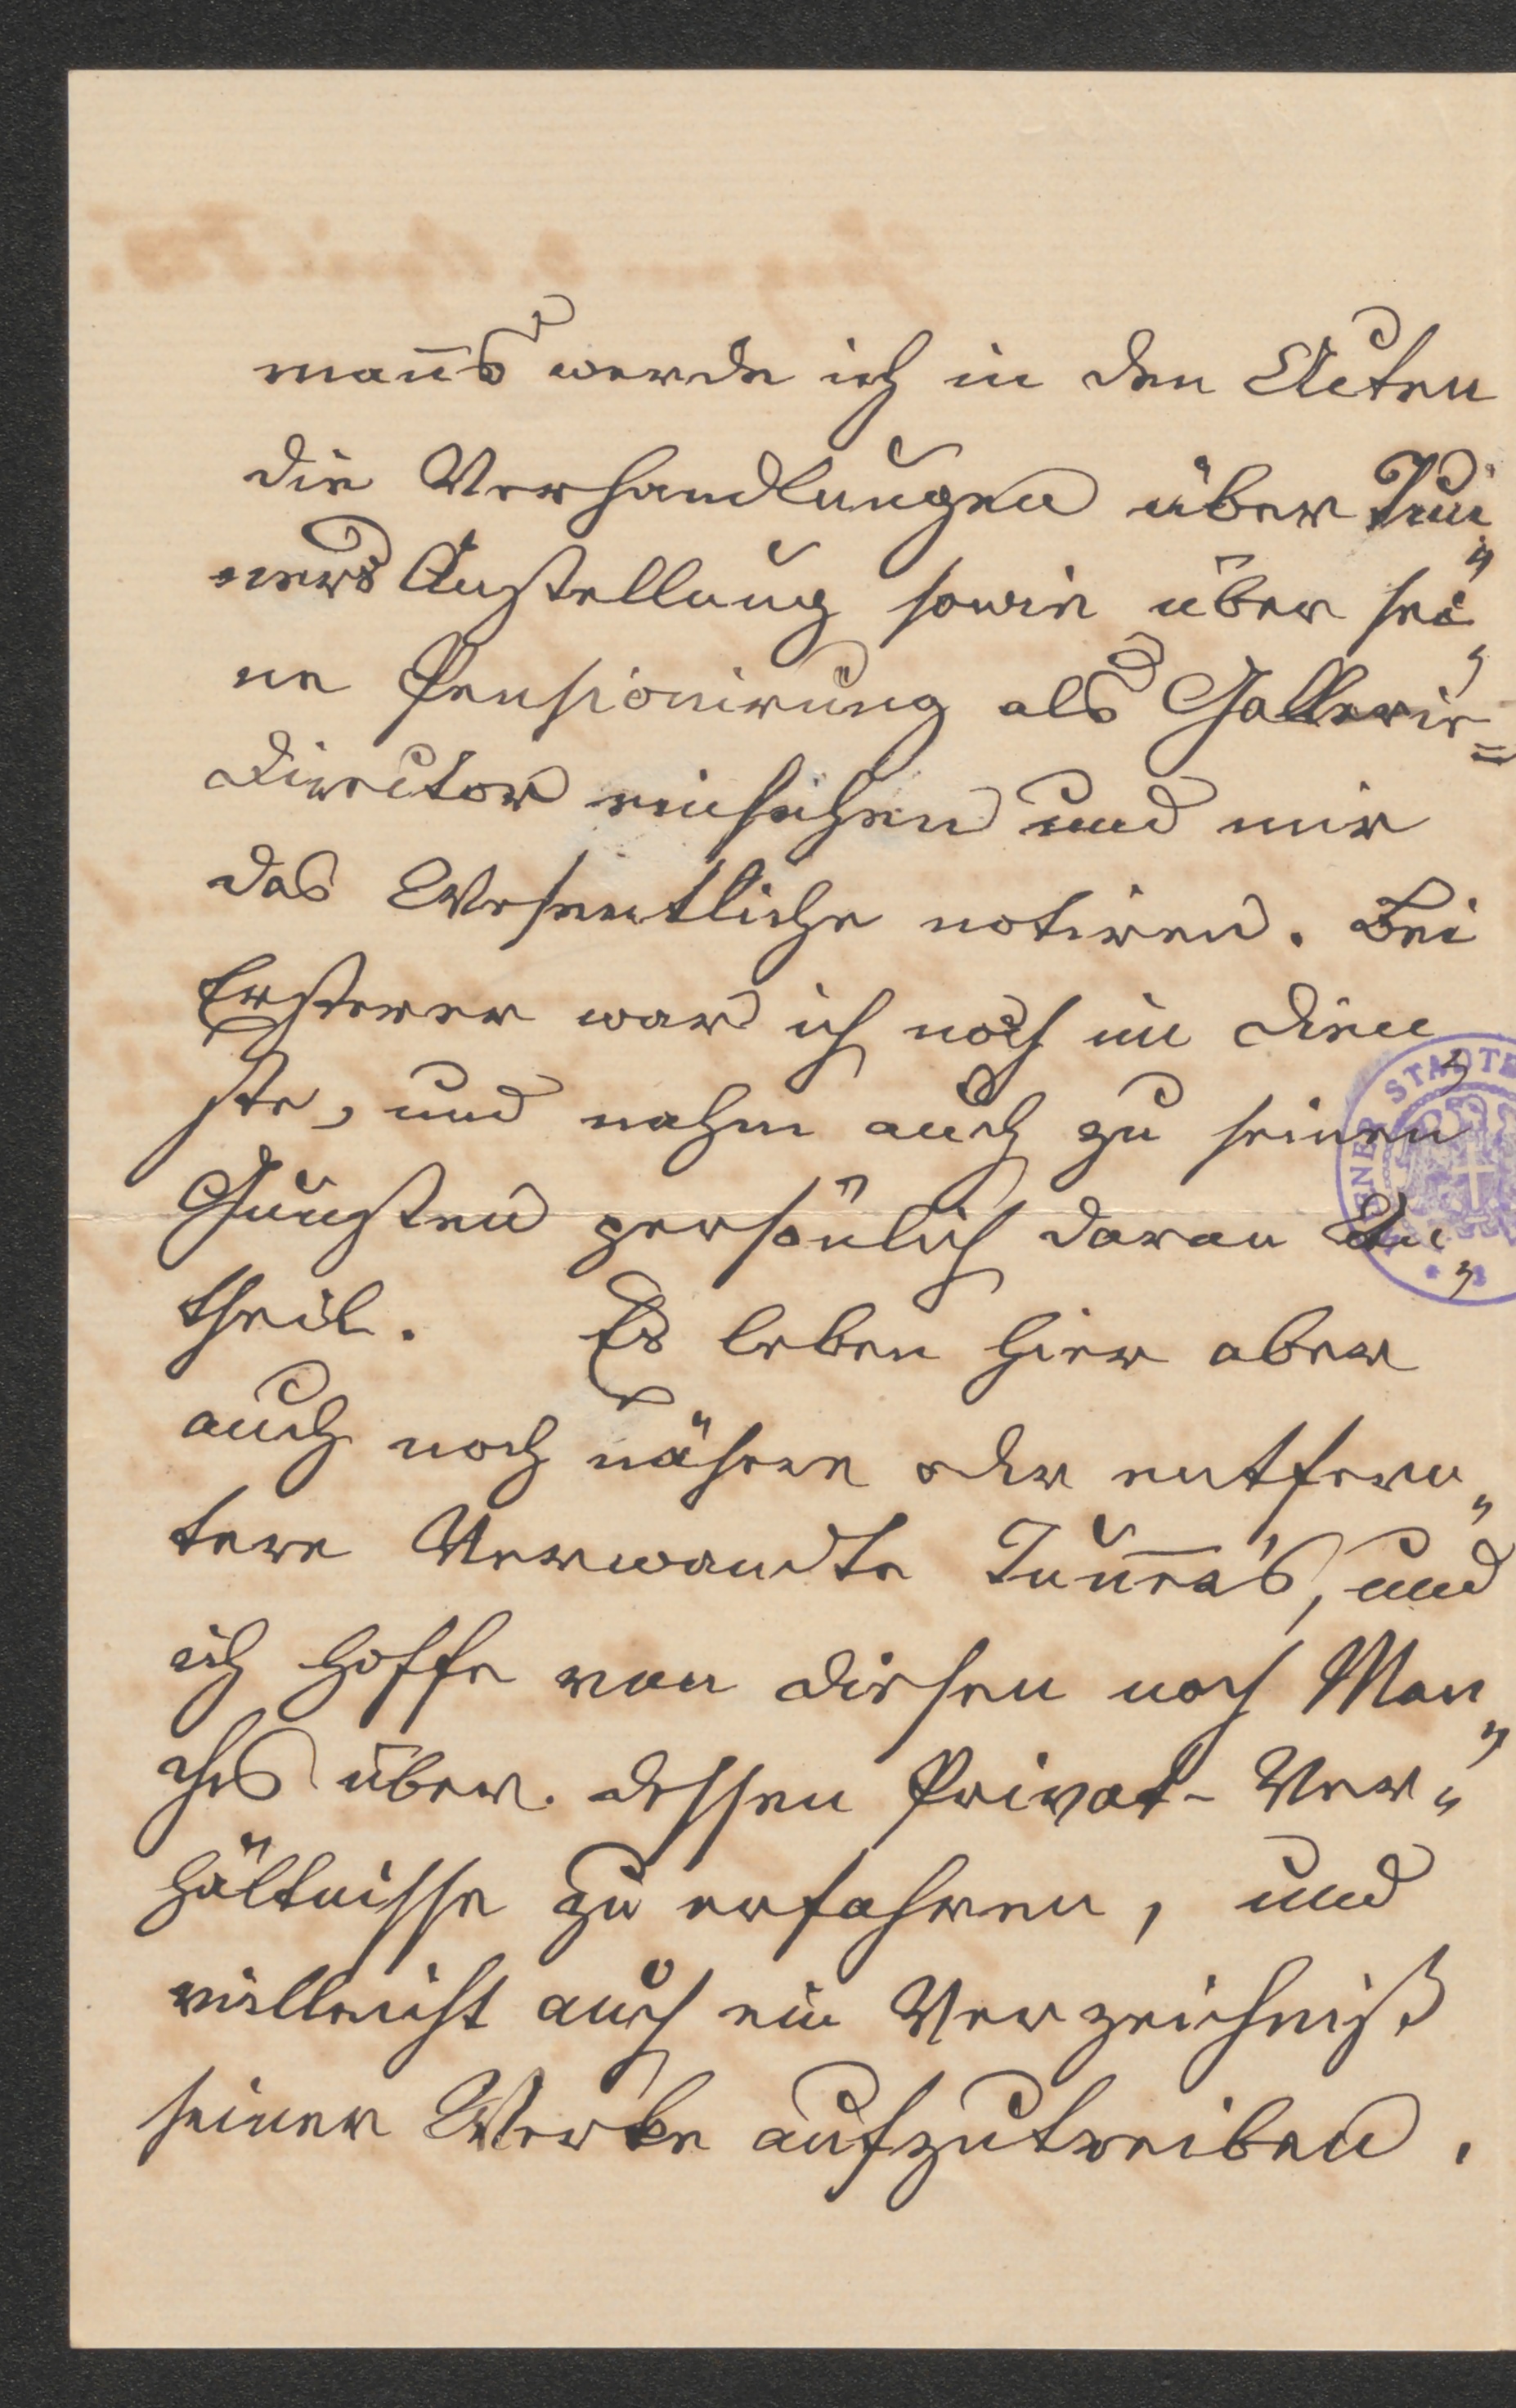 man̅s werde ich in den Acten
die Verhandlungen über Tun„
ners Anstellung sowie über sei„
ne Pensionirung als Gallerie=
director einsehen und mir
das Wesentliche notiren. Bei
Ersterer war ich noch im Dien„
ste, und nahm auch zu seinen
Gunsten persönlich daran An„
theil. Es leben hier aber
auch noch nähere oder entfern„
tere Verwandte Tun̅ers, und
ich hoffe von diesen noch Man„
ches über dessen Privat-Ver„
hältnisse zu erfahren, und
vielleicht auch ein Verzeichniß
seiner Werke aufzutreiben.